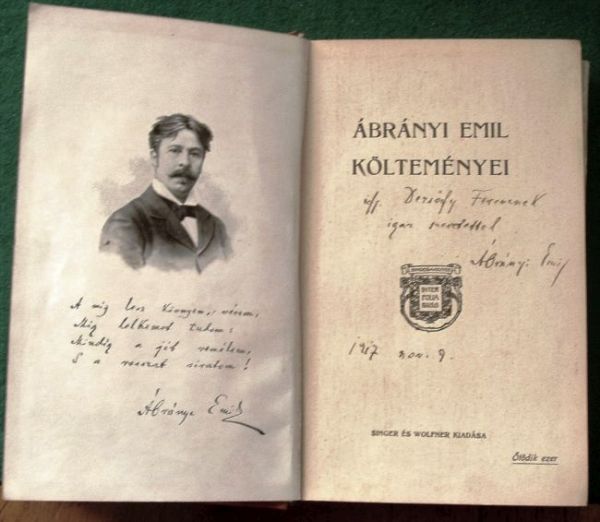 A mig lesz könnyem, vérem,
Mig lelkemet tudom:
Mindig a jót remélem,
S a rosszat siratom!
Ábrányi Emil
ÁBRÁNYI EMIL
KÖLTEMÉNYEI
ifj. Dezsőfy Ferencnek
igaz szeretettel
Ábrányi Emil
SINGER & WOLFNER
INTER
FOLIA
1917 nov. 9.
SINGER ÉS WOLFNER KIADÁSA
Ötödik ezer